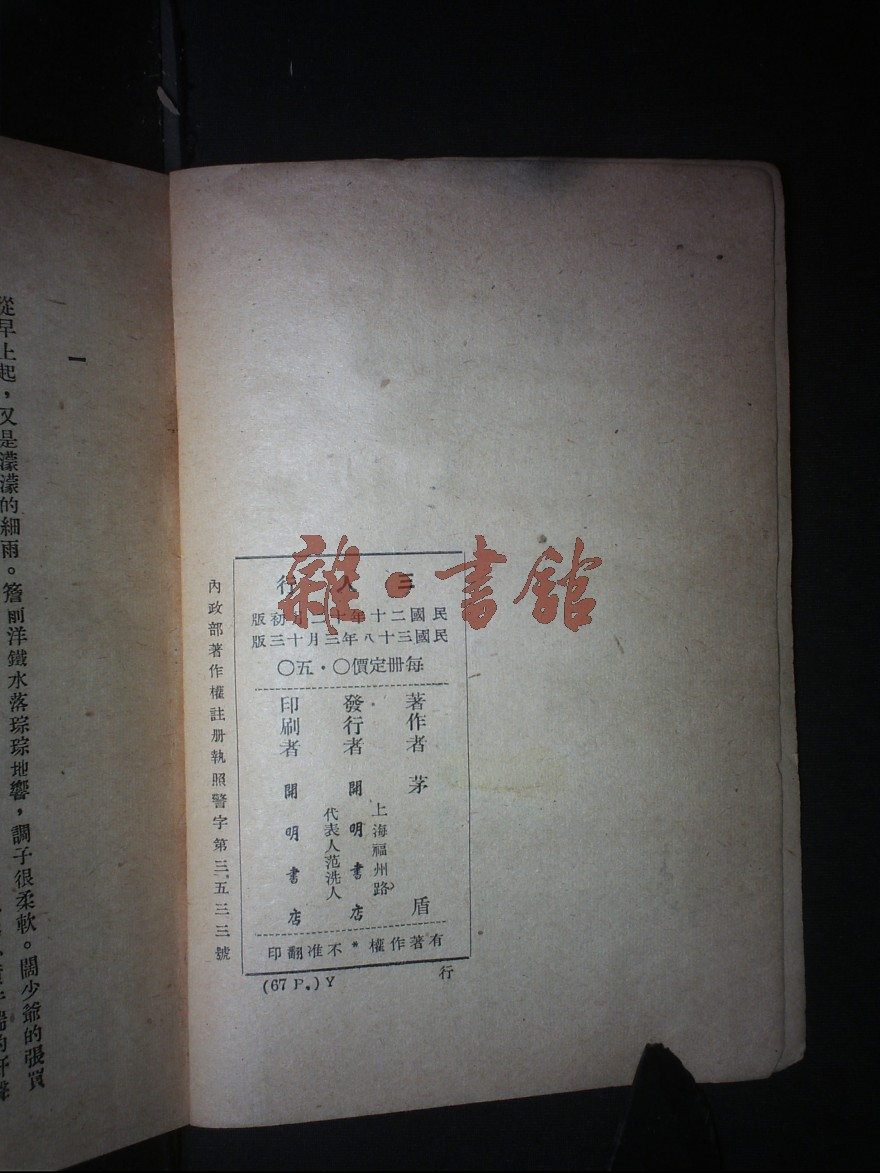 三人行
民國二十年十二月初版
民國三十八年三月十三版
每冊定價〇・五〇
著作者 茅盾
發行者 開明書店
上海福州路
代表人范洗人
印刷者 開明書店
有著作權＊不准翻印
行
(67 P.) Y
內政部著作權註册執照警字第三.五三三號
雜・書館
一
從早上起，又是濛濛的細雨。簷前洋鐵水落琮琮地響，調子很柔軟。闊少爺的張賓